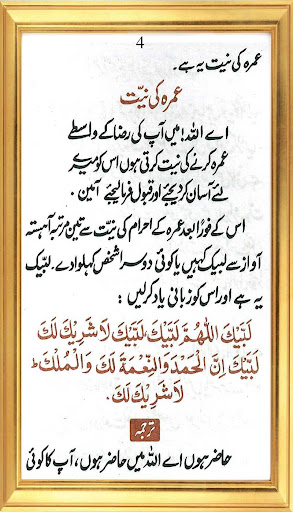 4
عمرہ کی نیت یہ ہے۔
عمرہ کی نیّت
اے اللہ! میں آپ کی رضا کے واسطے
عمرہ کرنے کی نیت کرتی ہوں اس کو میرے
لئے آسان کر دیجئے اور قبول فرما لیجئے آمین۔
اس کے فوراً بعد عمرہ کے احرام کی نیّت سے تین مرتبہ آہستہ
آواز سے لبیک کہیں یا کوئی دوسرا شخص کہلوا دے۔ لبّیک
یہ ہے اور اس کو زبانی یاد کر لیں:
لَبَّيْكَ اَللّٰهُمَّ لَبَّيْكَ لَبَّيْكَ لَاشَرِيْكَ لَكَ
لَبَّيْكَ اِنَّ الْحَمْدَ وَالنِّعْمَةَ لَكَ وَالْمُلْكَ ط
لَاشَرِيْكَ لَكَ.
ترجمہ
حاضر ہوں اے اللہ میں حاضر ہوں، آپ کا کوئی